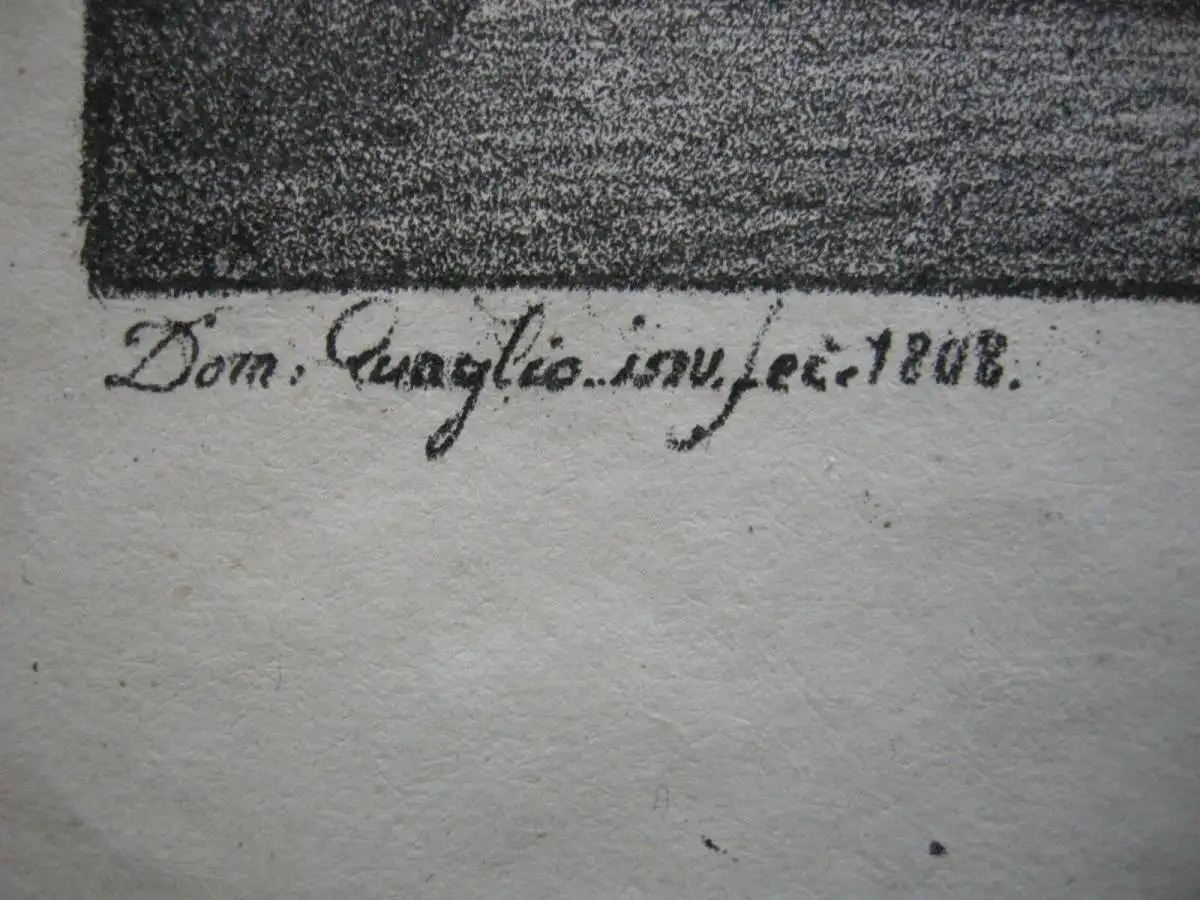 Dom. Quaglio..inv. fec. 1808.